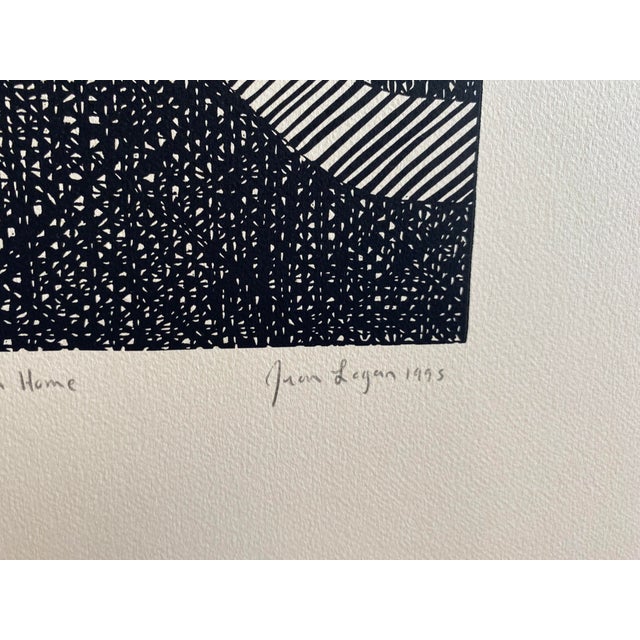 Home
Juan Logan 1995